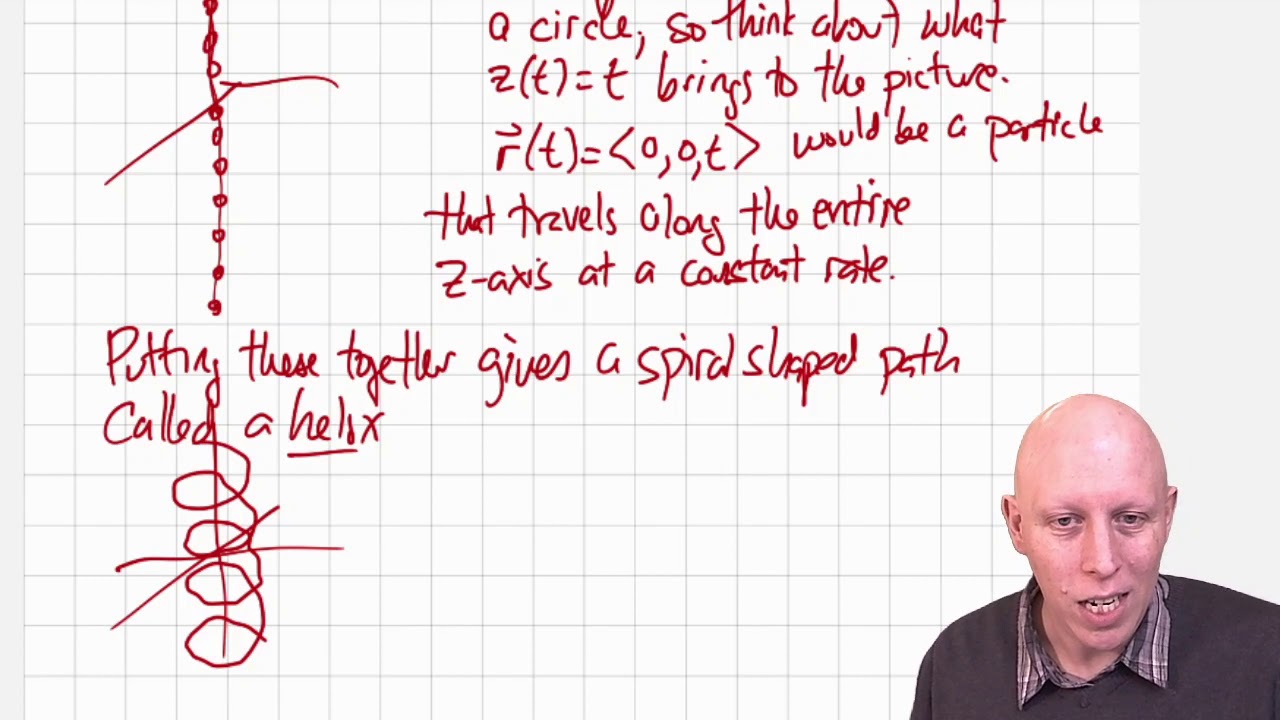 a circle, so think about what
z(t)=t brings to the picture.
r⃗(t)=<0,0,t> would be a particle
that travels along the entire
z-axis at a constant rate.
Putting these together gives a spiral shaped path
called a helix